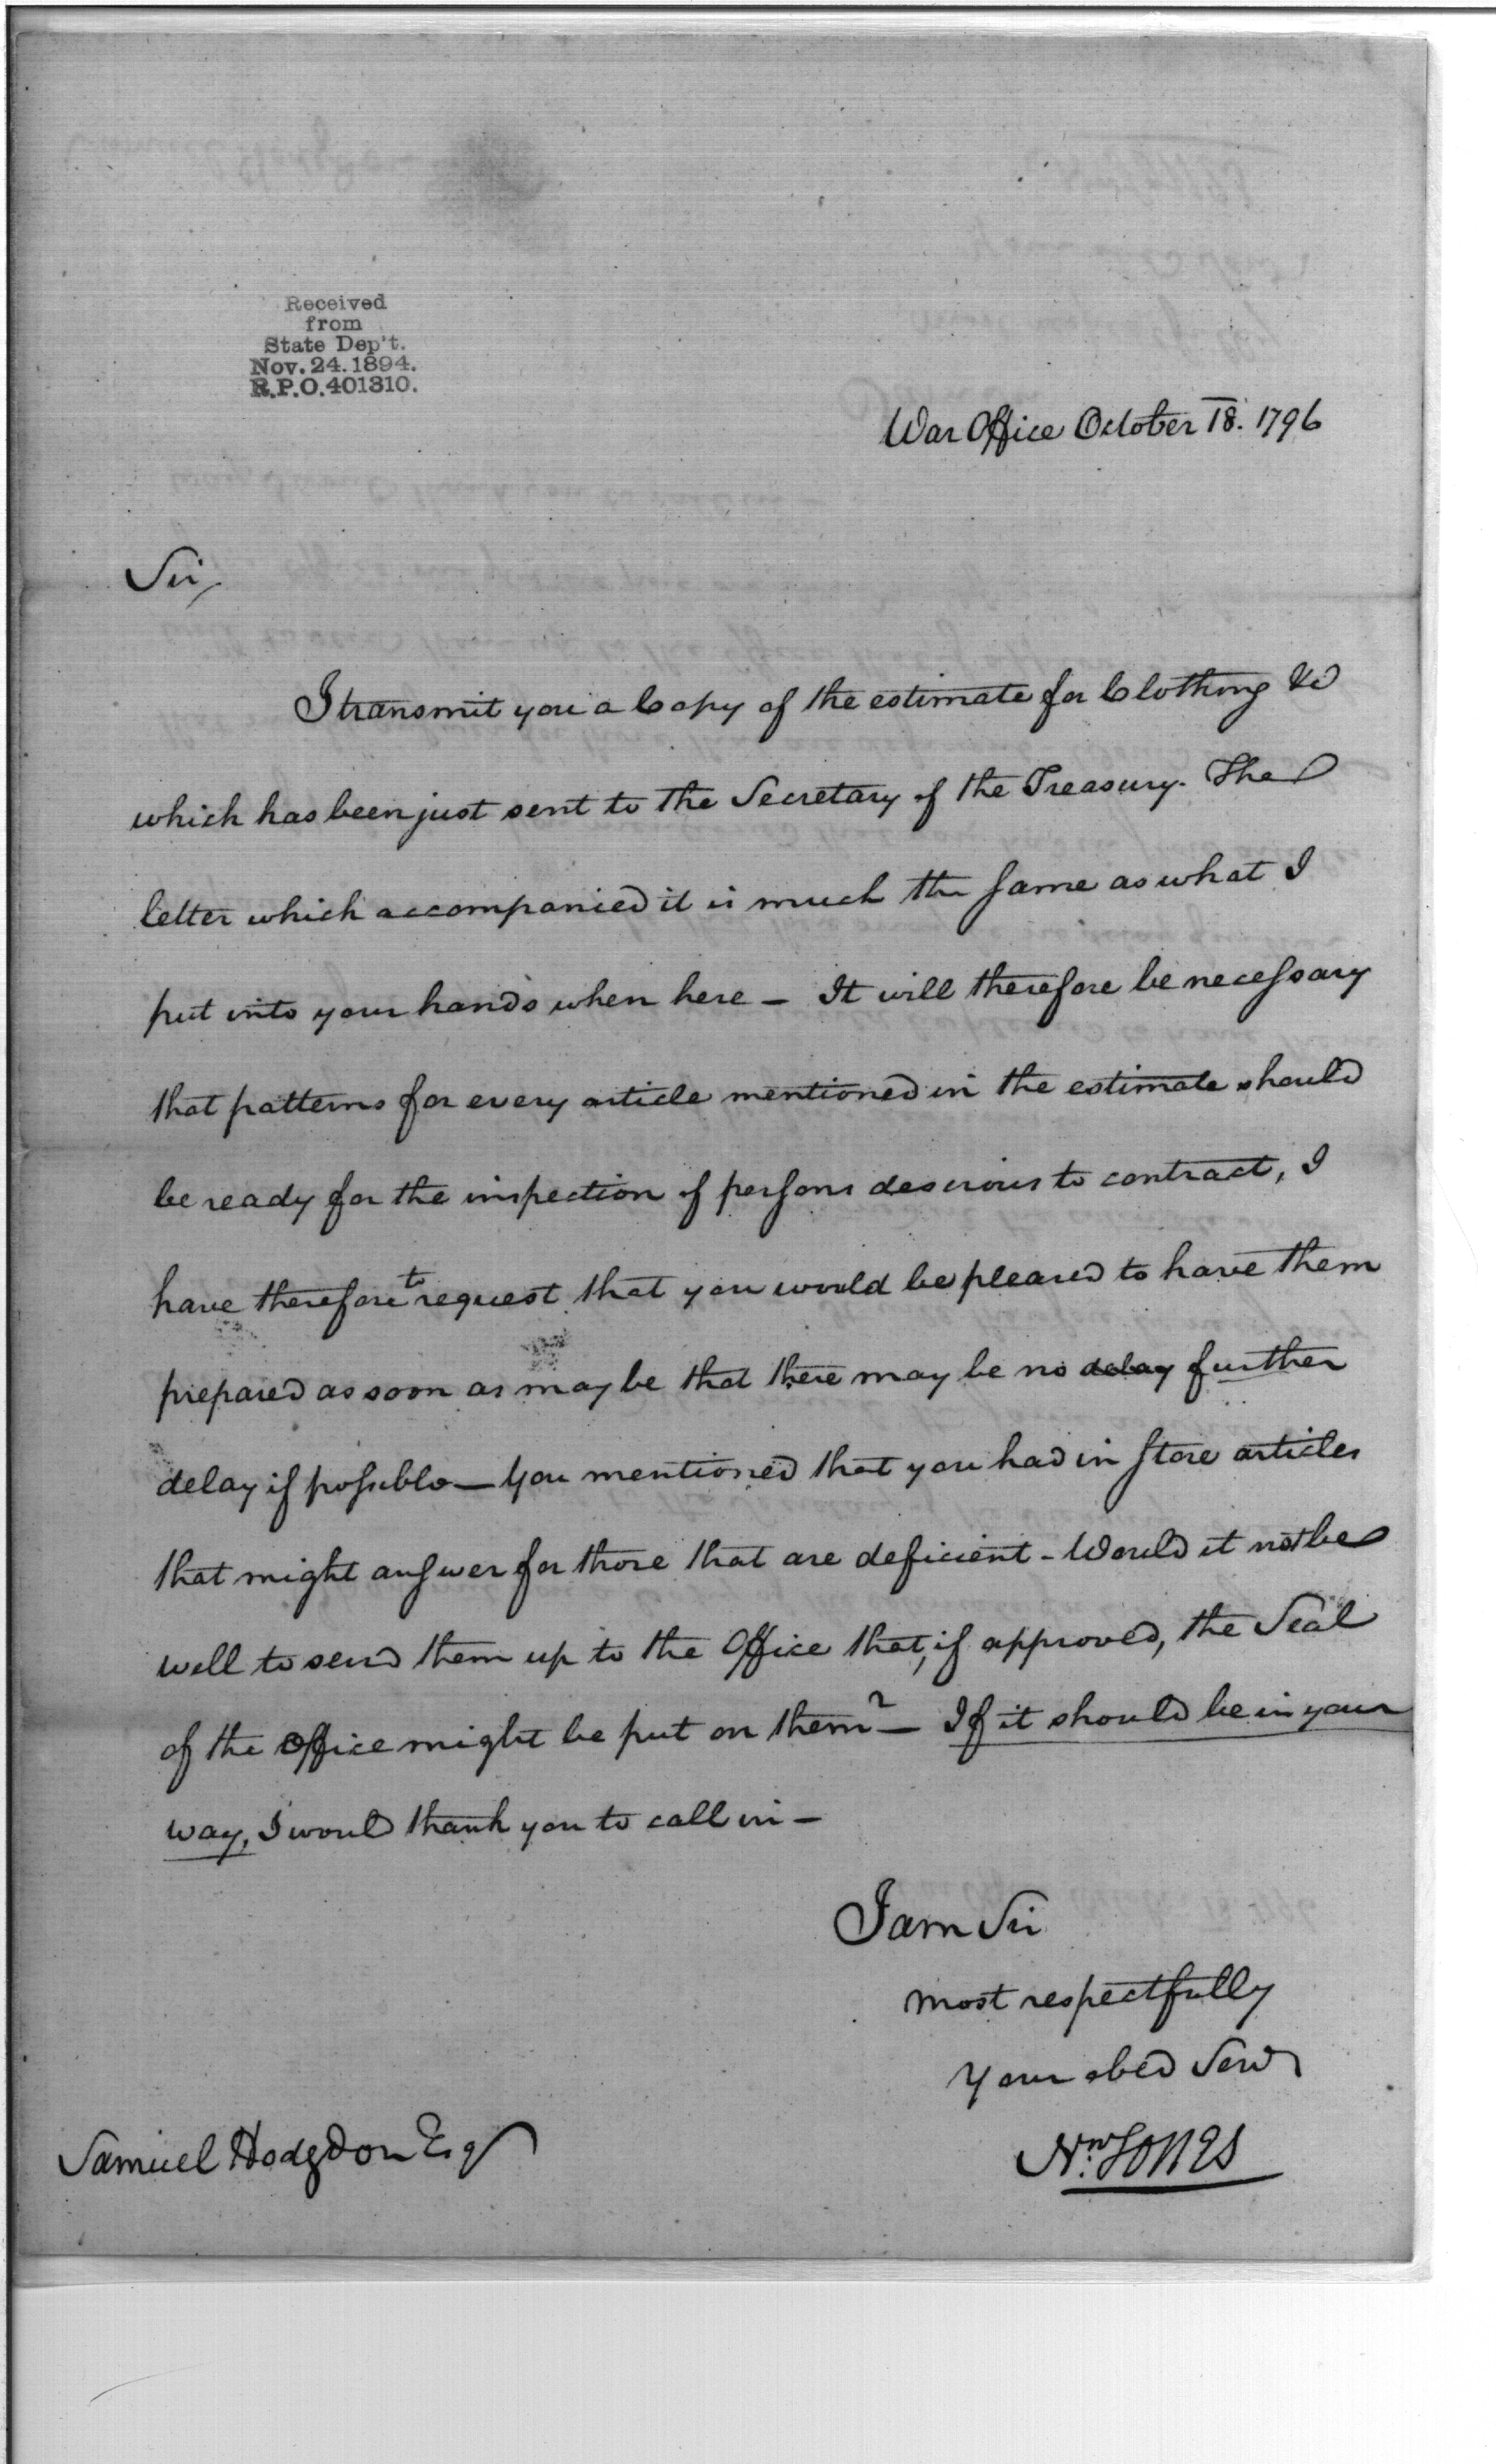 Received
from
State Dep't.
Nov. 24. 1894.
R.P.O. 401310.
War Office October 18. 1796
Sir,
I transmit you a Copy of the estimate for Clothing &c
which has been just sent to the Secretary of the Treasury. The
letter which accompanied it is much the same as what I
put into your hands when here – It will therefore be necessary
that patterns for every article mentioned in the estimate should
be ready for the inspection of persons desirous to contract, I
have therefore to request that you would be pleased to have them
prepared as soon as may be that there may be no delay further
delay if possible — You mentioned that you had in store articles
that might answer for those that are deficient – Would it not be
well to send them up to the Office that, if approved, the Seal
of the Office might be put on them? – If it should be in your
way, I would thank you to call in –
I am Sir
most respectfully
Your obed Serv
Nw. Jones
Samuel Hodgdon Esq